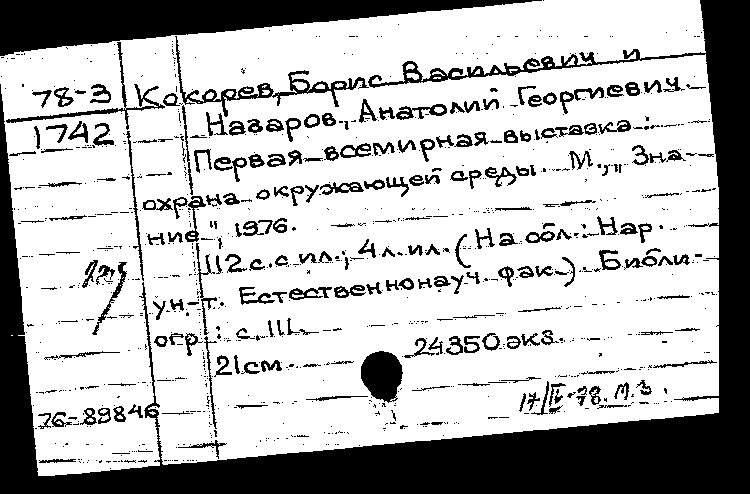 78-3 Кокорев, Борис Васильевич и
1742 Назаров, Анатолий Георгиевич.
Первая всемирная выставка:
охрана окружающей среды. М., „Зна-
ние", 1976.
112 с. с ил.; 4 л. ил. (На обл.: Нар.
ун-т. Естественнонауч. фак.) Библи-
огр.: с. 111.
21 см. 24350 экз.
76-89846
17/IV-78. М.З.